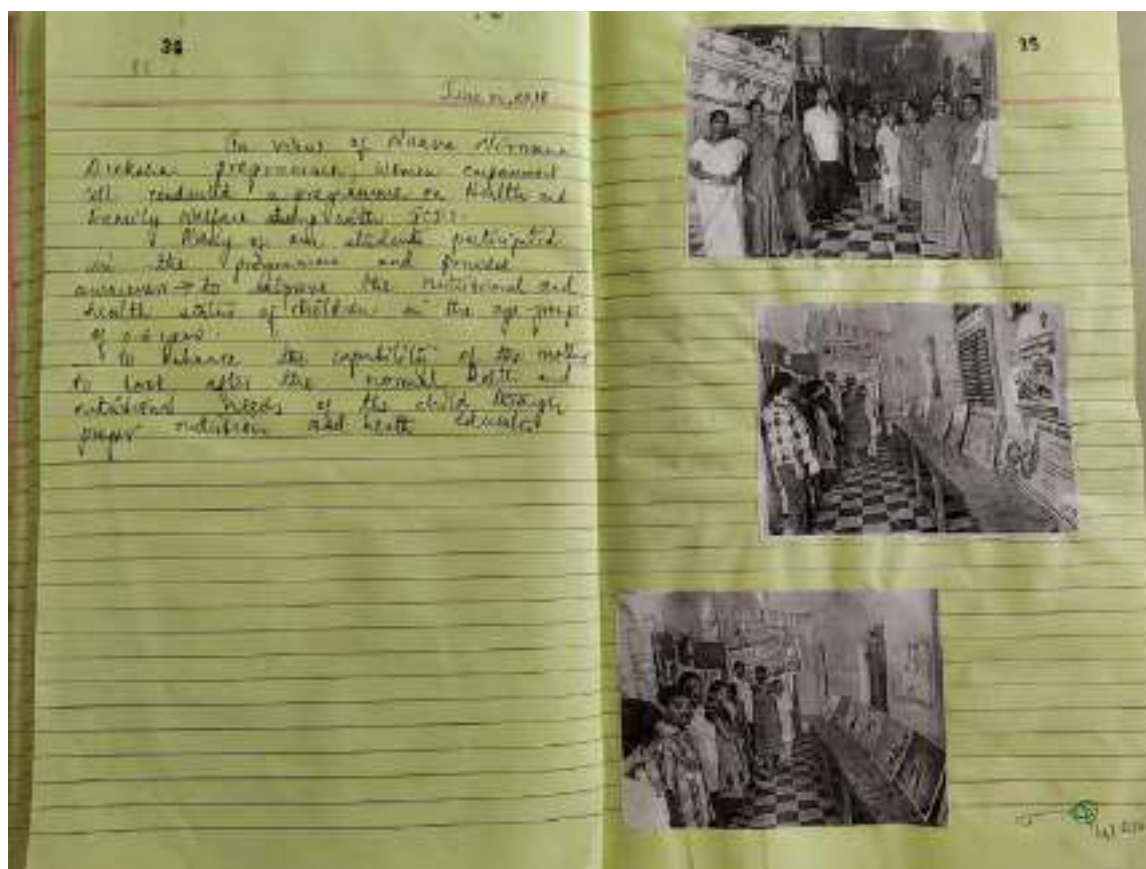 38
35
June
In view of Nava Nirmana
Deeksha programme, women empowerment
cell conducted a programme on Health and
Family Welfare along with ICDS.
of our students participated
in the programme and provide
awareness → to improve the nutritional and
health status of children in the age group
of 0-6 years.
to Enhance the capability of the mother
to look after the normal health and
nutritional needs of the child through
proper nutrition and health education